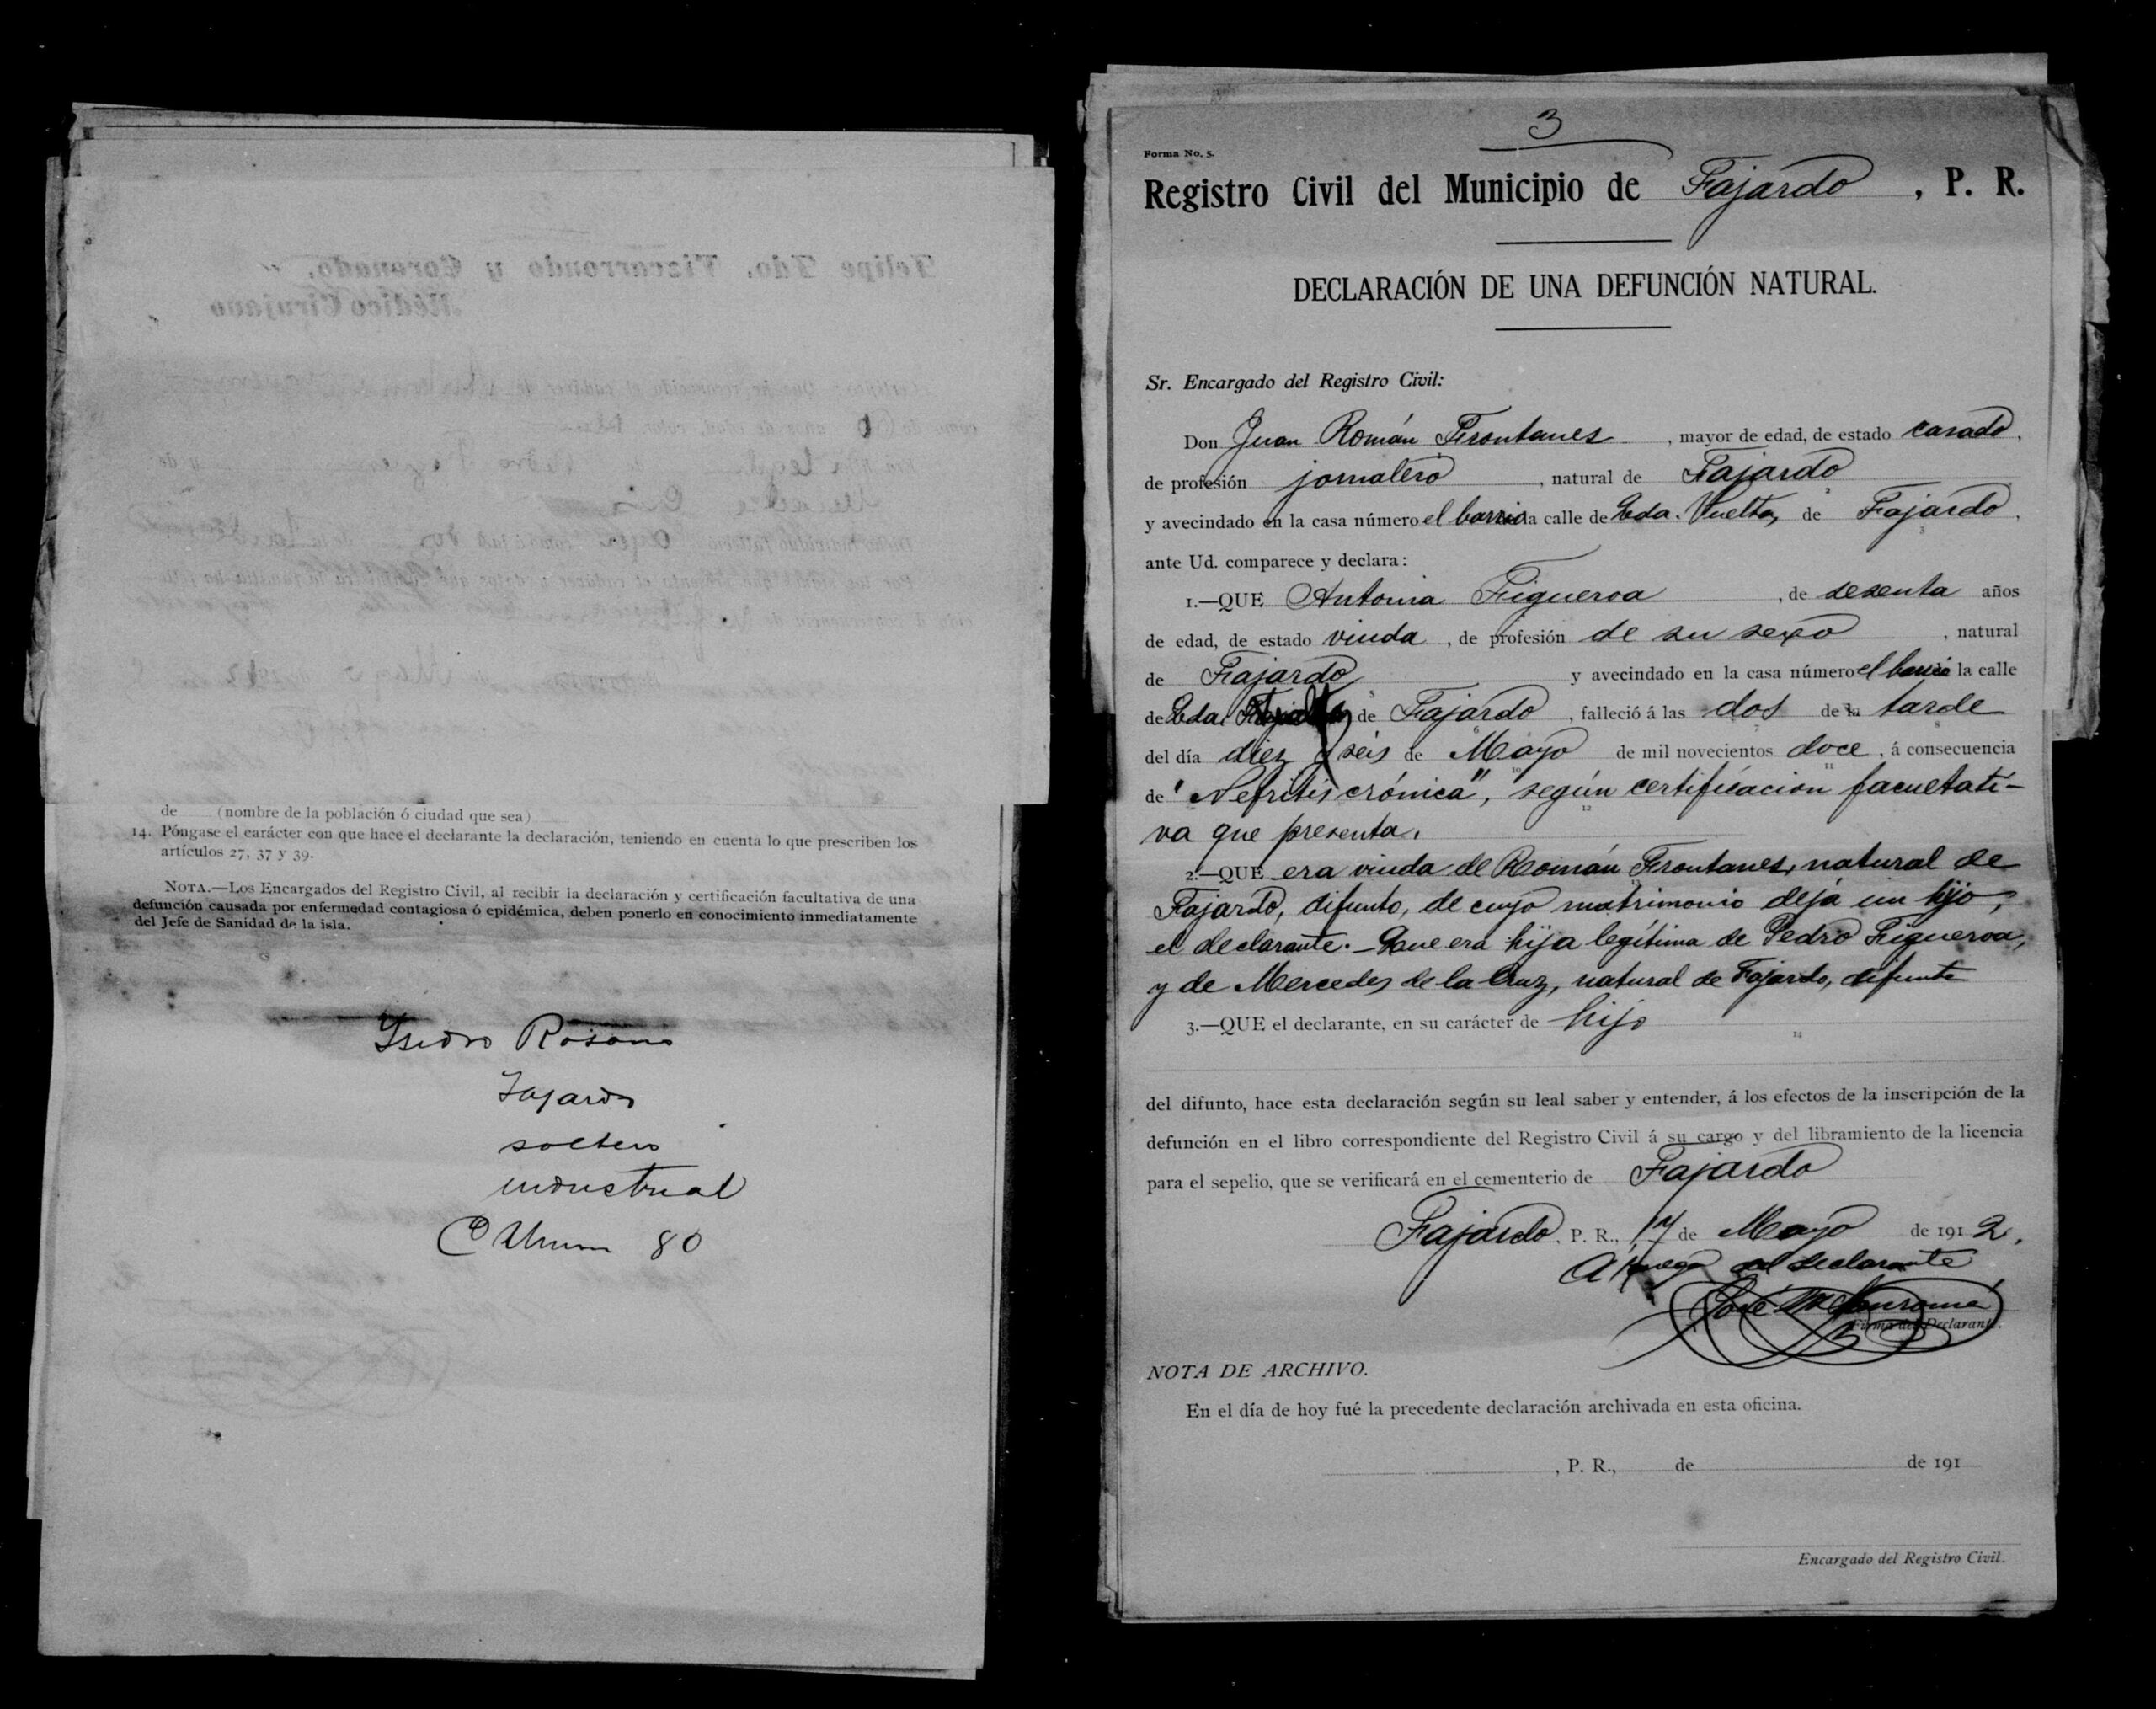 de (nombre de la población ó ciudad que sea)
14. Póngase el carácter con que hace el declarante la declaración, teniendo en cuenta lo que prescriben los
artículos 27, 37 y 39.
NOTA.—Los Encargados del Registro Civil, al recibir la declaración y certificación facultativa de una
defunción causada por enfermedad contagiosa ó epidémica, deben ponerlo en conocimiento inmediatamente
del Jefe de Sanidad de la isla.
Isidro Rosario
Fajardo
soltero
industrial
80
3
Forma No. 5.
Registro Civil del Municipio de Fajardo, P. R.
DECLARACIÓN DE UNA DEFUNCIÓN NATURAL.
Sr. Encargado del Registro Civil:
Don Juan Román Frontanes, mayor de edad, de estado casado,
de profesión jornalero, natural de Fajardo
y avecindado en la casa número el barrio la calle de Qda. Vuelta, de Fajardo,
ante Ud. comparece y declara:
1.—QUE Antonia Figueroa, de sesenta años
de edad, de estado viuda, de profesión de su sexo, natural
de Fajardo y avecindado en la casa número el barrio la calle
de Qda. de Fajardo, falleció á las dos de la tarde
del día diez y seis de Mayo de mil novecientos doce, á consecuencia
de "Nefritis crónica", según certificación facultati-
va que presenta.
2.—QUE era viuda de Román Frontanes, natural de
Fajardo, difunto, de cuyo matrimonio deja un hijo,
el declarante.- Que era hija legítima de Pedro Figueroa,
y de Mercedes de la Cruz, natural de Fajardo, difunta
3.—QUE el declarante, en su carácter de hijo
del difunto, hace esta declaración según su leal saber y entender, á los efectos de la inscripción de la
defunción en el libro correspondiente del Registro Civil á su cargo y del libramiento de la licencia
para el sepelio, que se verificará en el cementerio de Fajardo
Fajardo, P. R., 17 de Mayo de 1912.
A ruego del declarante
José
Firma del Declarante.
NOTA DE ARCHIVO.
En el día de hoy fué la precedente declaración archivada en esta oficina.
, P. R., de de 191
Encargado del Registro Civil.